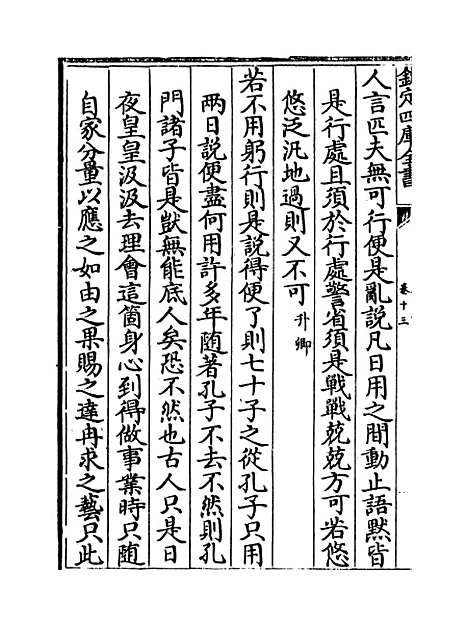 欽定四庫全書
卷十三
人言匹夫無可行便是亂說凡日用之間動止語默皆
是行處且須於行處警省須是戰戰兢兢方可若悠
悠泛汎地過則又不可升卿
若不用躬行則是說得便了則七十子之從孔子只用
兩日說便盡何用許多年随著孔子不去不然則孔
門諸子皆是獃無能底人矣恐不然也古人只是日
夜皇皇汲汲去理會這箇身心到得做事業時只随
自家分量以應之如由之果賜之達冉求之藝只此